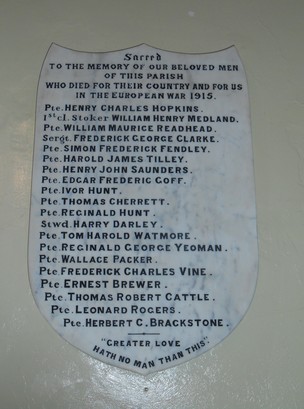 Sacred
TO THE MEMORY OF OUR BELOVED MEN
OF THIS PARISH
WHO DIED FOR THEIR COUNTRY AND FOR US
IN THE EUROPEAN WAR 1915.
Pte. HENRY CHARLES HOPKINS.
1st cl. Stoker WILLIAM HENRY MEDLAND.
Pte. WILLIAM MAURICE READHEAD.
Sergt. FREDERICK GEORGE CLARKE.
Pte. SIMON FREDERICK FENDLEY.
Pte. HAROLD JAMES TILLEY.
Pte. HENRY JOHN SAUNDERS.
Pte. EDGAR FREDERIC GOFF.
Pte. IVOR HUNT.
Pte THOMAS CHERRETT.
Pte. REGINALD HUNT.
Stwd. HARRY DARLEY.
Pte. TOM HAROLD WATMORE.
Pte. REGINALD GEORGE YEOMAN.
Pte. WALLACE PACKER.
Pte FREDERICK CHARLES VINE.
Pte ERNEST BREWER.
Pte. THOMAS ROBERT CATTLE.
Pte. LEONARD ROGERS.
Pte. HERBERT C. BRACKSTONE.
"GREATER LOVE
HATH NO MAN THAN THIS"